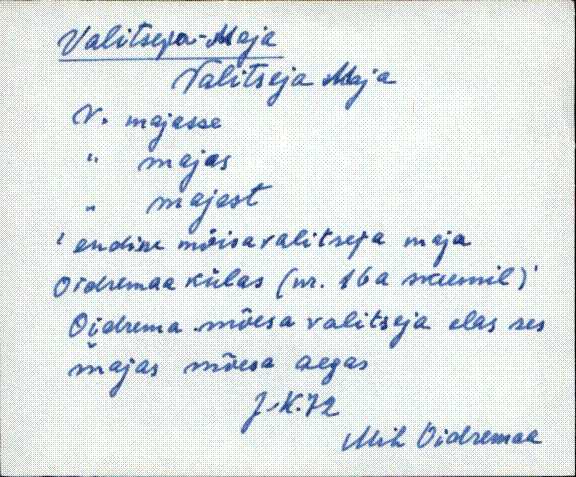 Valitseja-Maja
Valitseja Maja
V. majasse
" majas
" majast
'endine mõisavalitseja maja
Oidremaa külas (nr. 16a skeemil)'
Oidrema mõesa valitseja elas ses
majas mõesa aegas
J.K.72
Mih Oidremaa